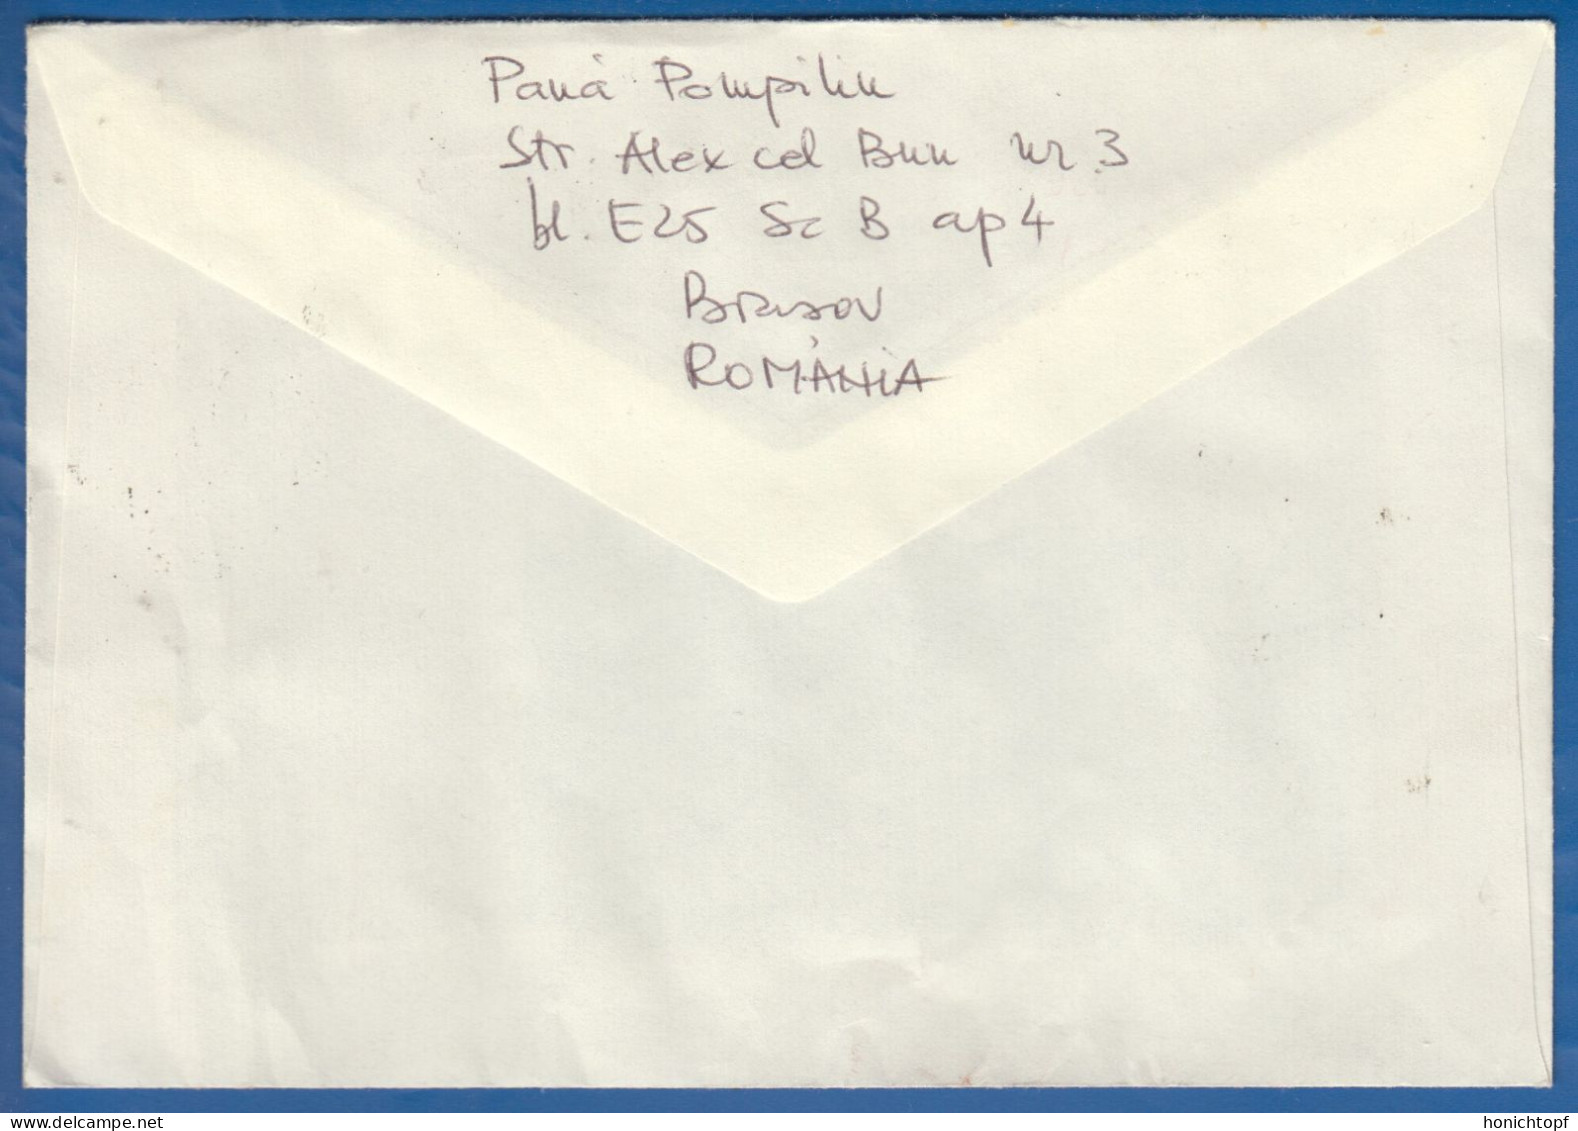 Pană Pompiliu
Str. Alex cel Bun nr. 3
bl. E25 Sc B ap 4
Brasov
ROMÂNIA
honichtopf